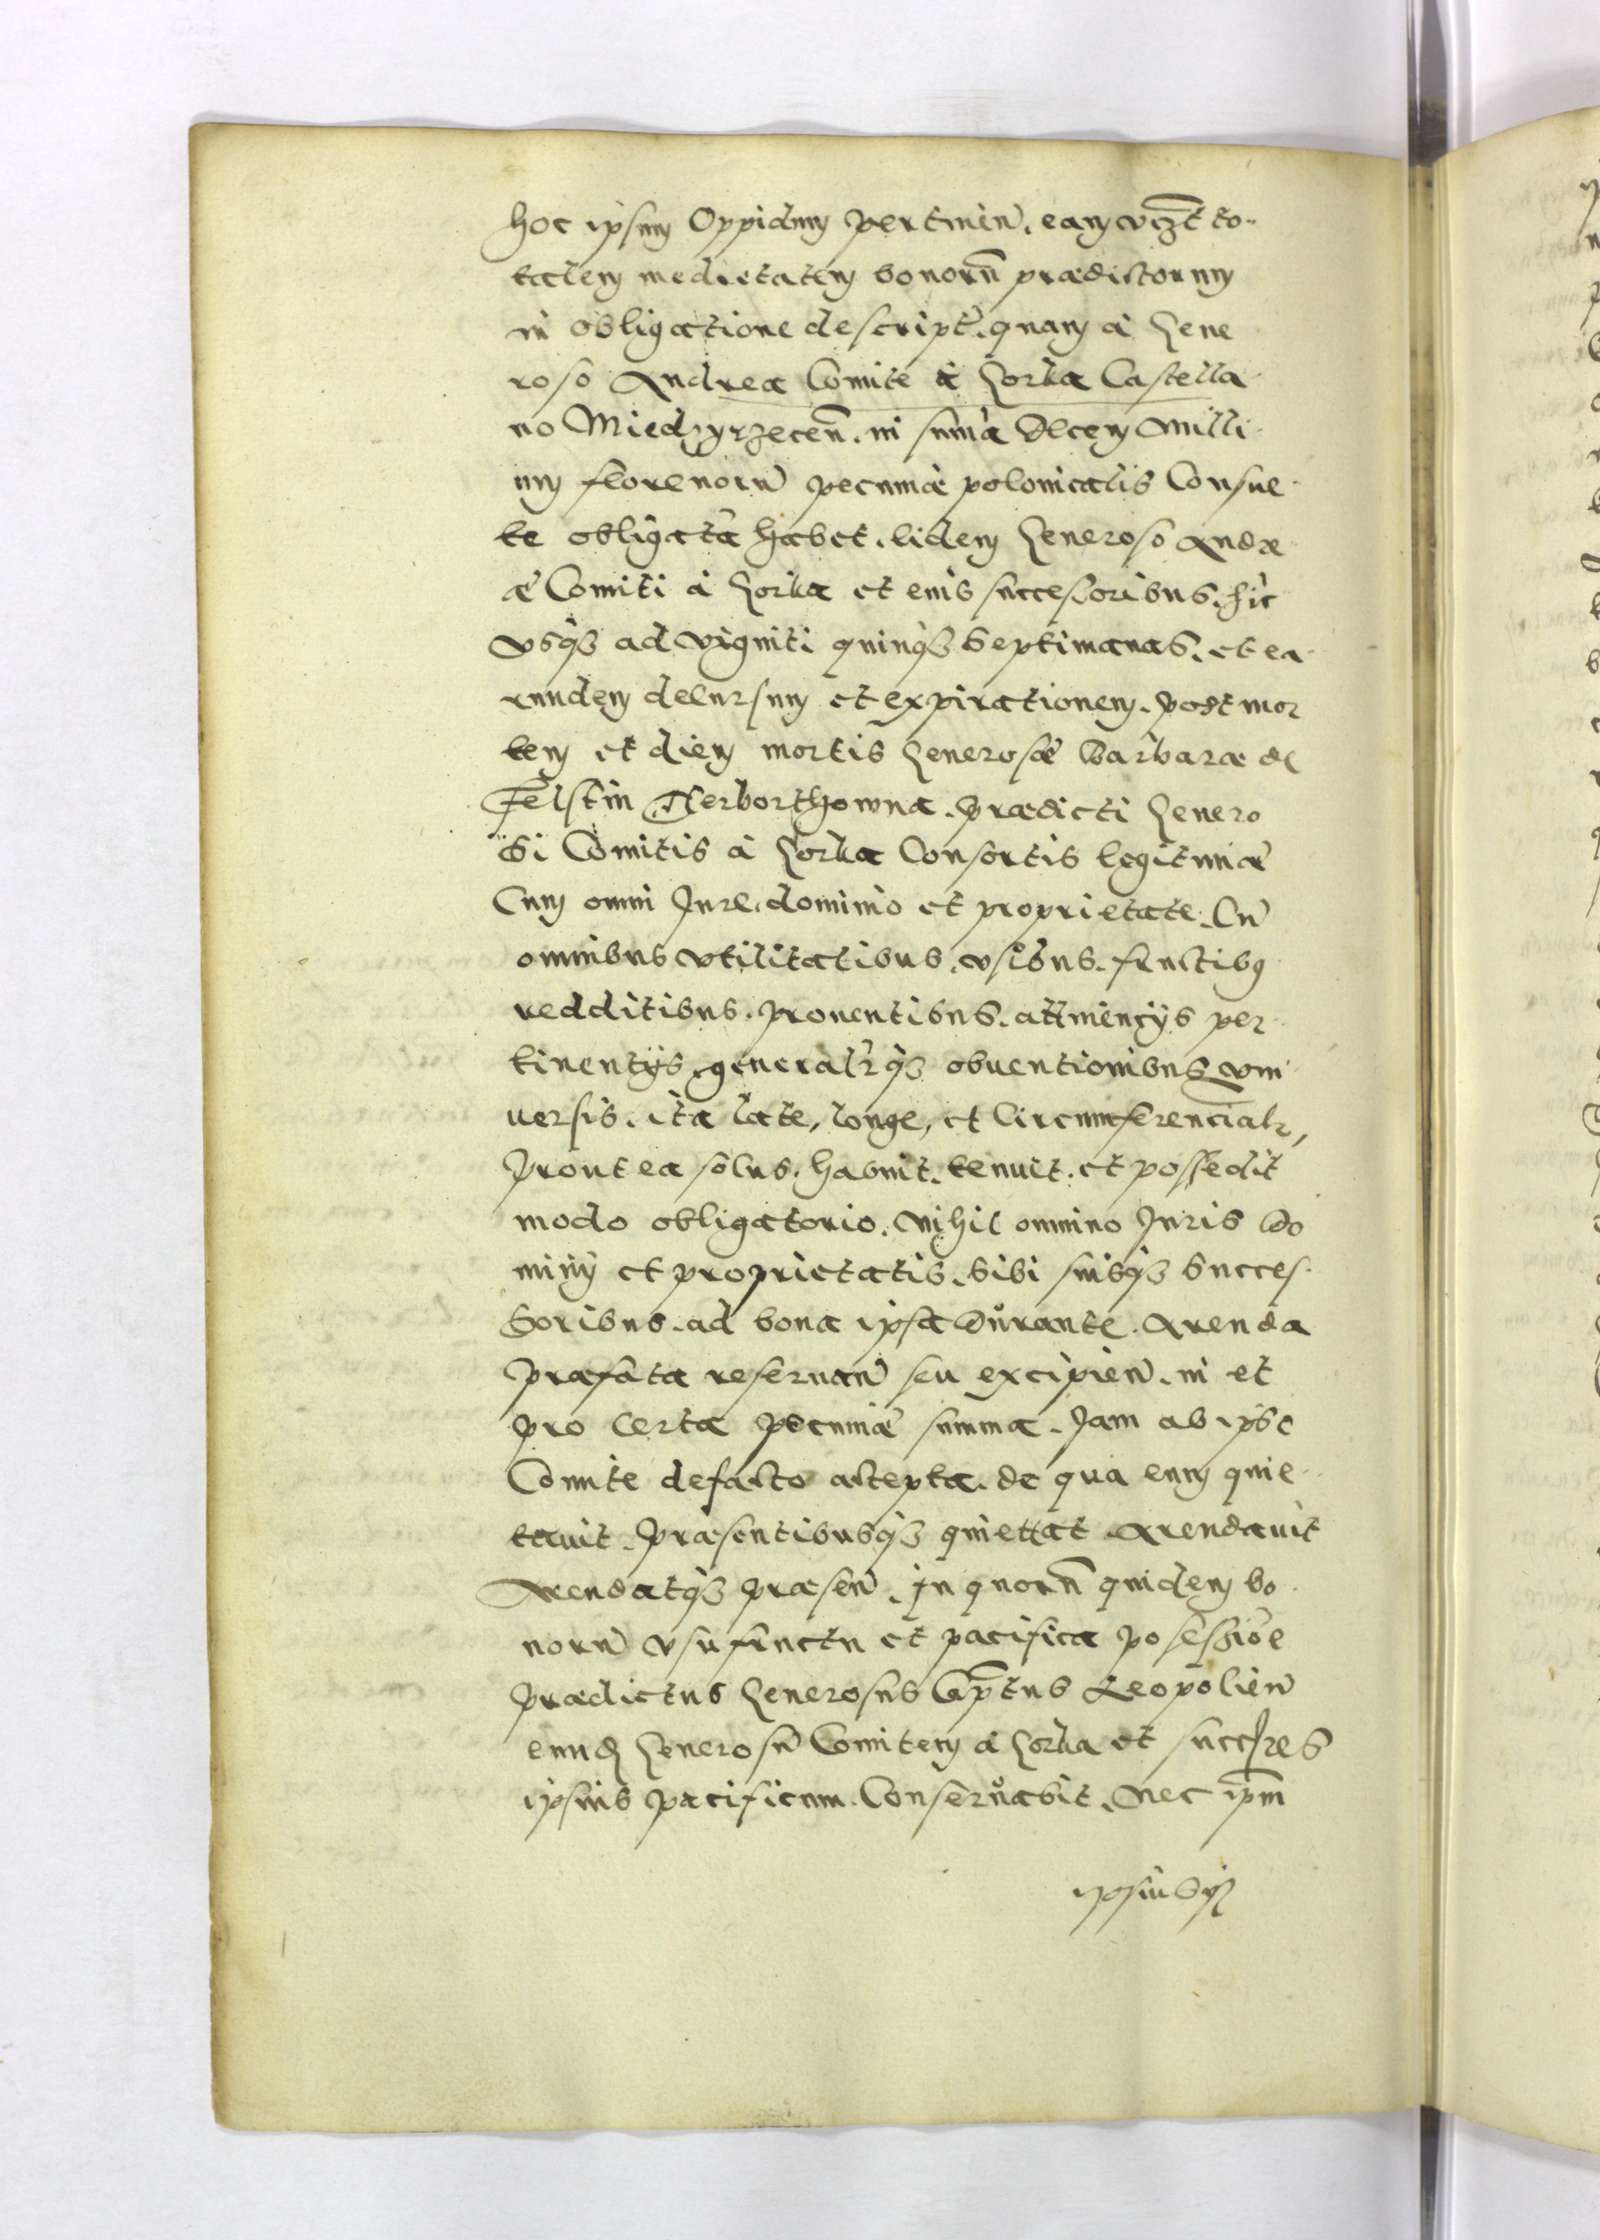 hoc ipsum Oppidum pertinen̄. eam včzt to-
talem medietatem bonorū prædictorum
in obligatione descript̄. quam à Gene
roso Andrea Comite à Gorka Castella-
no Miedzyrzecen̄. in sum̄a Decem Milli-
um florenorū pecuniæ polonicalis Consue-
te obligatā habet. Eidem Generoso Andre-
æ Comiti à Gorka et eius successoribus. hic
vsqȝ ad viginti quinqȝ Septimanas. et ea-
rundem decursum et expirationem. post mor
tem et diem mortis Generosæ Barbaræ de
Felstin Herborthowna. prædicti Genero
si Comitis à Gorka Consortis legitimæ
Cum omni Jure. dominio et proprietate. Cū
omnibus vtilitatibus. vsibus. fructibꝯ
redditibus. prouentibus. attinencijs per-
tinentijs. generalr̄qȝ obuentionibus vni-
uersis. ita late, longe, et Circumferencialr̄,
prout ea solus. habuit. tenuit. et possedit
modo obligatorio. Nihil omnino Juris Do
minij et proprietatis. sibi suisqȝ Succes-
soribus. ad bona ipsa Durante. Arenda
præfata reseruan̄ seu excipien̄. in et
pro Certa pecuniæ summa. Jam ab ipso
Comite defacto accepta. de qua eum quie-
tauit. Præsentibusqȝ quiettat. Arendauit
Arendatqȝ præsen̄. Jn quorū quidem bo-
norū vsufructu et pacifica possessiōe
prædictus Generosus Cap̄tus Leopolien̄
eund̄ Generosū Comitem à Gorka et succ̄sres
ipsius pacificum. Conseruabit. Nec ip̄m
ipsiusqȝ